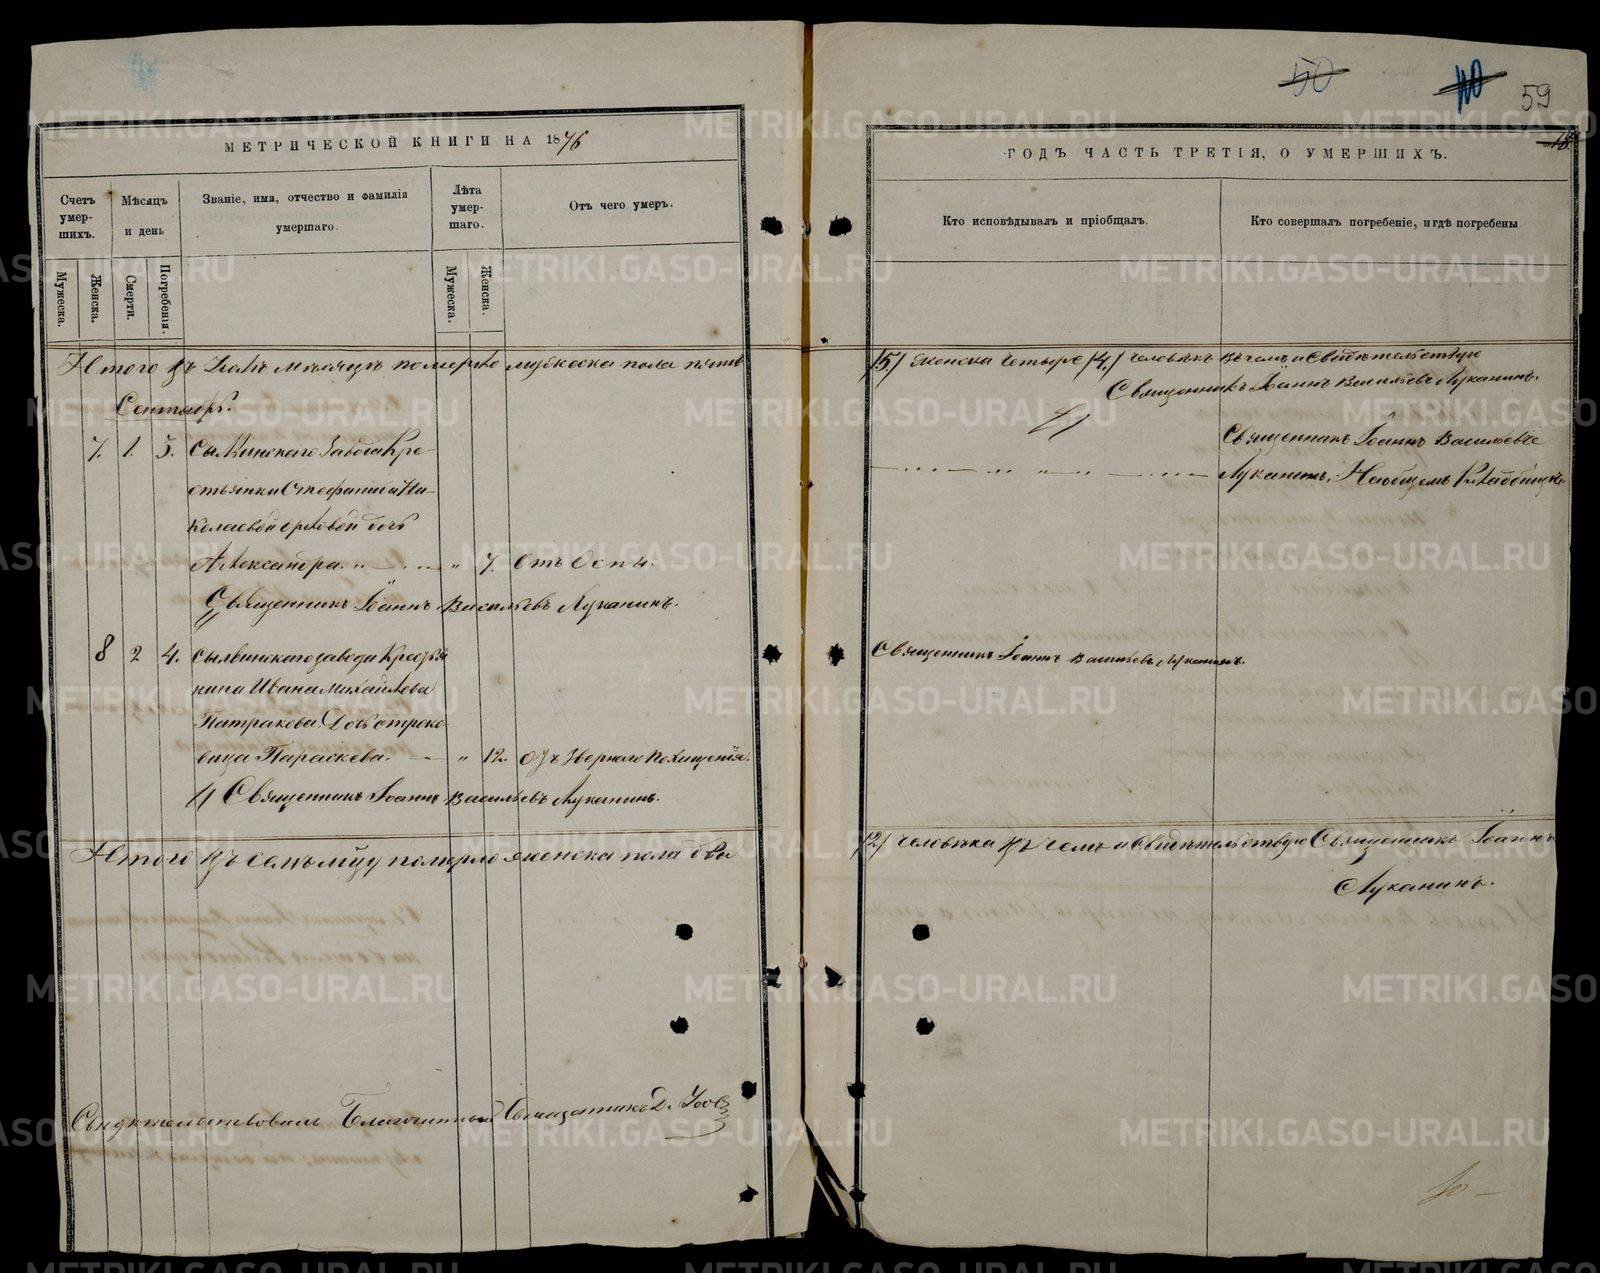 50 40 59
МЕТРИЧЕСКОЙ КНИГИ НА 1876
ГОДЪ ЧАСТЬ ТРЕТІЯ, О УМЕРШИХЪ.
18.
Счетъ умер-шихъ.
Мѣсяцъ и день
Званіе, имя, отчество и фамилія умершаго.
Лѣта умер-шаго.
Отъ чего умеръ.
Кто исповѣдывалъ и пріобщалъ.
Кто совершалъ погребеніе, и гдѣ погребены
Мужеска.
Женска.
Смерти.
Погребенія.
Мужеска.
Женска.
Итого въ мѣсяцѣ померло мужеска пола пять
/5/ женска четыре /4/ человѣкъ въ чемъ и свидѣтельствую
Священникъ Іоаннъ Васильевъ Луканинъ.
Сентябрь.
7. 1. 3. Сылвинскаго завода Кре-
стьянки Стефаниды Ни-
колаевой дочь
Александра. " " 7. Отъ Оспы.
Священникъ Іоаннъ Васильевъ
Луканинъ. На общемъ Кладбищѣ.
Священникъ Іоаннъ Васильевъ Луканинъ.
8 2 4. Сылвинскаго завода Кресть
янина Ивана Михайлова
Патракова Дочь отроко-
вица Параскева. " 12.
Священникъ Іоаннъ Васильевъ Луканинъ.
Священникъ Іоаннъ Васильевъ Луканинъ.
Итого въ семъ мцѣ померло женска пола два
/2/ человѣка въ чемъ и свидѣтельствую Священникъ Іоаннъ
Луканинъ.
Свидѣтельствовалъ Благочинный Священникъ Д.
METRIKI.GASO-URAL.RU